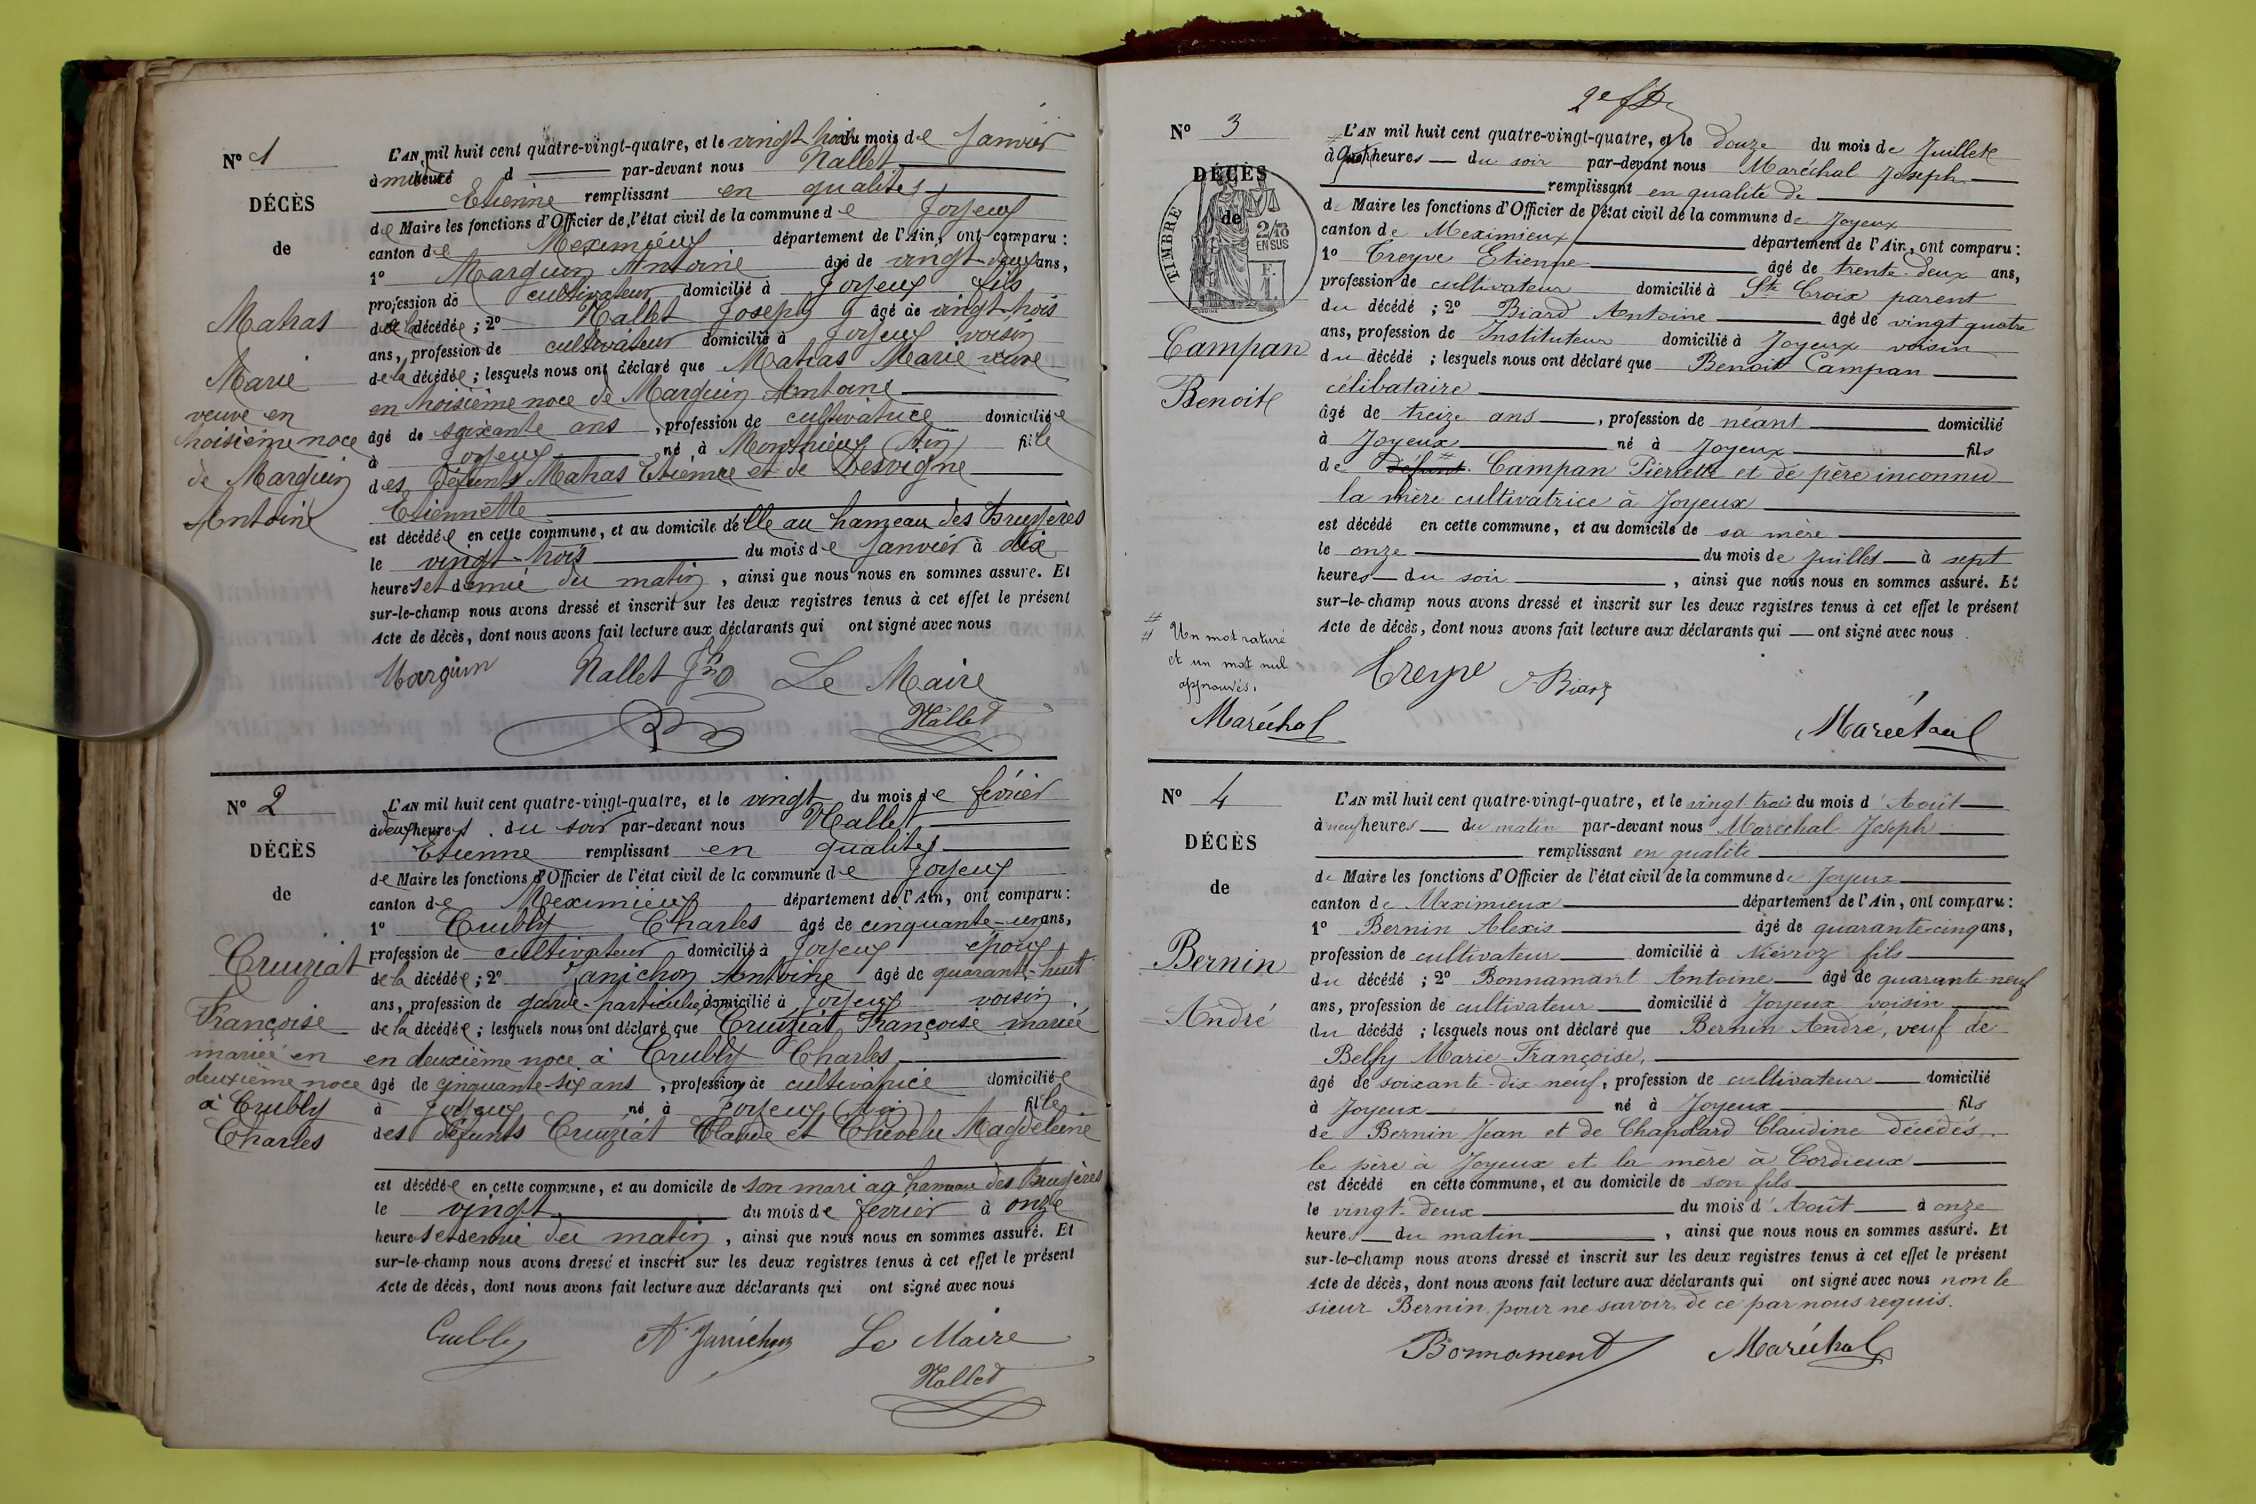 N° 1
DÉCÈS
de
Mahas
Marie
veuve en
troisième noce
de Marguin
Antoine
L'AN mil huit cent quatre-vingt-quatre, et le vingt trois du mois de Janvier
à midi heure d par-devant nous Nallet
Etienne remplissant en qualités
de Maire les fonctions d'Officier de l'état civil de la commune de Joyeux
canton de Meximieux département de l'Ain, ont comparu :
1° Marguin Antoine âgé de vingt-deux ans,
profession de cultivateur domicilié à Joyeux fils
de la décédée ; 2° Nallet Joseph âgé de vingt-trois
ans, profession de cultivateur domicilié à Joyeux voisin
de la décédée ; lesquels nous ont déclaré que Mahas Marie veuve
en troisième noce de Marguin Antoine
âgé de soixante ans, profession de cultivatrice domiciliée
à Joyeux né à Monthieux (Ain) fille
des défunts Mahas Etienne et de Desvigne
Etiennette
est décédée en cette commune, et au domicile d'elle au hameau des Bruyères
le vingt-trois du mois de Janvier à dix
heures et demie du matin, ainsi que nous nous en sommes assuré. Et
sur-le-champ nous avons dressé et inscrit sur les deux registres tenus à cet effet le présent
Acte de décès, dont nous avons fait lecture aux déclarants qui ont signé avec nous
Marguin Nallet Jh Le Maire
Nallet
N° 2
DÉCÈS
de
Cruiziat
Françoise
mariée en
deuxième noce
à Crubly
Charles
L'AN mil huit cent quatre-vingt-quatre, et le vingt du mois de février
à deux heures du soir par-devant nous Nallet
Etienne remplissant en qualités
de Maire les fonctions d'Officier de l'état civil de la commune de Joyeux
canton de Meximieux département de l'Ain, ont comparu :
1° Crubly Charles âgé de cinquante-un ans,
profession de cultivateur domicilié à Joyeux époux
de la décédée ; 2° Janichon Antoine âgé de quarante-huit
ans, profession de garde-particulier domicilié à Joyeux voisin
de la décédée ; lesquels nous ont déclaré que Cruiziat Françoise mariée
en deuxième noce à Crubly Charles
âgé de cinquante-six ans, profession de cultivatrice domiciliée
à Joyeux né à Joyeux (Ain) fille
des défunts Cruiziat Claude et Chevelu Magdeleine
est décédée en cette commune, et au domicile de son mari au hameau des Bruyères
le vingt du mois de février à onze
heures et demie du matin, ainsi que nous nous en sommes assuré. Et
sur-le-champ nous avons dressé et inscrit sur les deux registres tenus à cet effet le présent
Acte de décès, dont nous avons fait lecture aux déclarants qui ont signé avec nous
Crubly A. Janichon Le Maire
Nallet
2e ft
N° 3
DÉCÈS
de
TIMBRE
2/10
EN SUS
Campan
Benoit
L'AN mil huit cent quatre-vingt-quatre, et le douze du mois de Juillet
à quatre heures du soir par-devant nous Maréchal Joseph
remplissant en qualité de
de Maire les fonctions d'Officier de l'état civil de la commune de Joyeux
canton de Meximieux département de l'Ain, ont comparu :
1° Creyve Etienne âgé de trente-deux ans,
profession de cultivateur domicilié à Ste Croix parent
du décédé ; 2° Biard Antoine âgé de vingt quatre
ans, profession de Instituteur domicilié à Joyeux voisin
du décédé ; lesquels nous ont déclaré que Benoit Campan
célibataire
âgé de treize ans, profession de néant domicilié
à Joyeux né à Joyeux fils
de défunt Campan Pierrette et de père inconnu
la mère cultivatrice à Joyeux
est décédé en cette commune, et au domicile de sa mère
le onze du mois de Juillet à sept
heures du soir, ainsi que nous nous en sommes assuré. Et
sur-le-champ nous avons dressé et inscrit sur les deux registres tenus à cet effet le présent
Acte de décès, dont nous avons fait lecture aux déclarants qui ont signé avec nous
Un mot raturé
et un mot nul
approuvés.
Maréchal
Creyve Biard
Maréchal
N° 4
DÉCÈS
de
Bernin
André
L'AN mil huit cent quatre-vingt-quatre, et le vingt trois du mois d'Août
à neuf heures du matin par-devant nous Maréchal Joseph
remplissant en qualité
de Maire les fonctions d'Officier de l'état civil de la commune de Joyeux
canton de Meximieux département de l'Ain, ont comparu :
1° Bernin Alexis âgé de quarante-cinq ans,
profession de cultivateur domicilié à Niévroz fils
du décédé ; 2° Bonnamant Antoine âgé de quarante neuf
ans, profession de cultivateur domicilié à Joyeux voisin
du décédé ; lesquels nous ont déclaré que Bernin André, veuf de
Belfy Marie-Françoise,
âgé de soixante-dix neuf, profession de cultivateur domicilié
à Joyeux né à Joyeux fils
de Bernin Jean et de Chapolard Claudine décédés,
le père à Joyeux et la mère à Cordieux
est décédé en cette commune, et au domicile de son fils
le vingt-deux du mois d'Août à onze
heures du matin, ainsi que nous nous en sommes assuré. Et
sur-le-champ nous avons dressé et inscrit sur les deux registres tenus à cet effet le présent
Acte de décès, dont nous avons fait lecture aux déclarants qui ont signé avec nous non le
sieur Bernin, pour ne savoir, de ce par nous requis.
Bonnament Maréchal